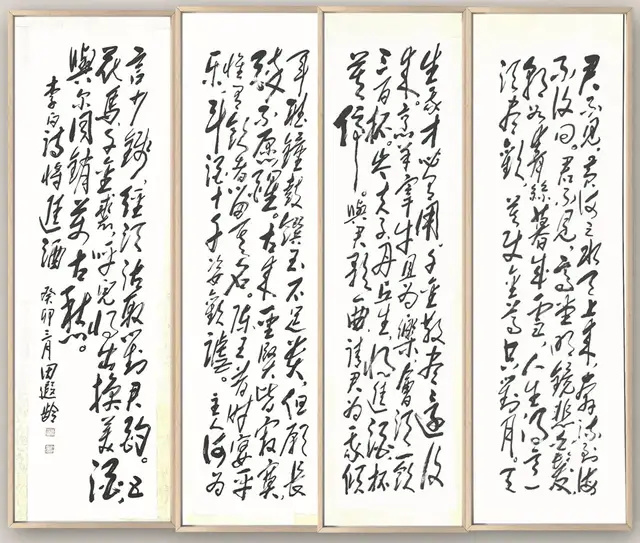 君不見，黃河之水天上来，奔流到海
不復回。君不見，高堂明鏡悲白髮，
朝如青絲暮成雪。人生得意
須盡歡，莫使金尊空對月。天
生我才必有用，千金散盡還復
来。烹羊宰牛且為樂，會須一飲
三百杯。岑夫子，丹丘生，將進酒，杯
莫停。與君歌一曲，請君為我傾
耳聽。鐘鼓饌玉不足贵，但願長
醉不願醒。古来聖賢皆寂寞，
惟有飲者留其名。陳王昔时宴平
樂，斗酒十千恣歡謔。主人何為
言少錢，徑須沽取對君酌。五
花馬，千金裘，呼兒將出換美酒，
與尔同銷萬古愁。
李白詩將進酒 癸卯三月田遐齡